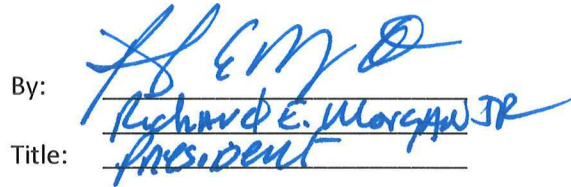 By:
Richard E. Morgan JR
Title: President